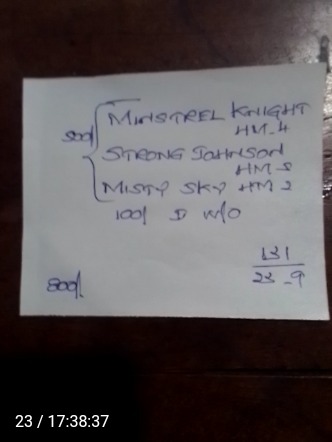 MINSTREL KNIGHT
HM-4
500/
STRONG JOHNSON
HM-2
MISTY SKY HM 2
100/ D W/O
131
23-9
800/.
23 / 17:38:37